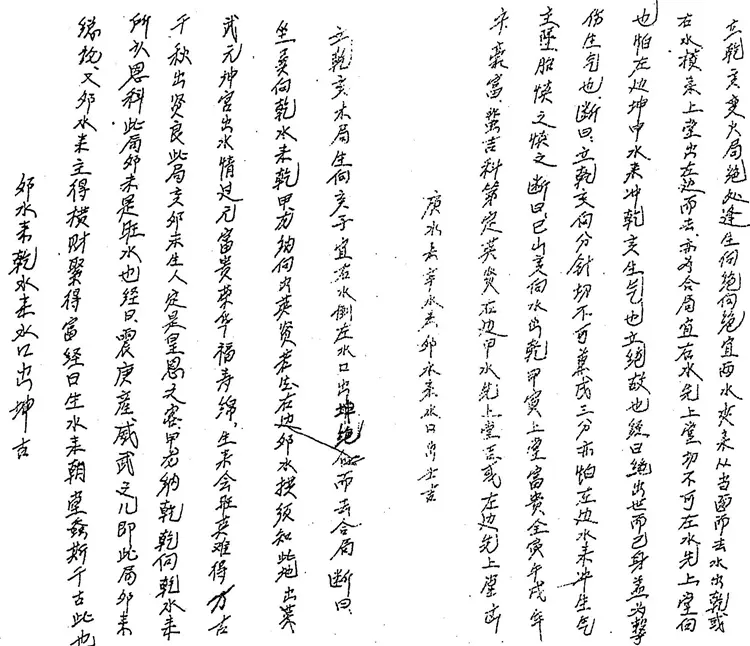 立乾亥变火局绝处逢生向绝向绝宜两水夹来从当面而去水出乾或
右水横来上堂出左边而去亦为合局宜右水先上堂切不可左水先上堂向
也怕左边坤申水来冲乾亥生气也立绝故也经曰绝出世而已身盖为击
伤生气也断曰立乾亥向分针切不可兼戌三分亦怕左边水来冲生气
主坠胎慎之慎之断曰巳山亥向水出乾甲寅上堂富贵全寅午戌年
来豪富蜚吉科第定英贤右边甲水先上堂去或左边先上堂凶
庚水去辛水去卯水来水口出吉
立乾亥木局生向亥子宜右水倒左水口出坤绝而去合局断曰
坐巽向乾水来乾甲方纳向出英贤若左右边卯水横须知此地出英
武元坤宫出水情过元富贵荣华福寿绵生来会旺真难得万古
千秋出贤良此局亥卯未生人定是皇恩又密甲方纳乾乾向乾水来
所以恩科此局卯未是旺水也经曰震庚产威武之儿即此局卯来
缘故又卯水来主得横财聚得富经曰生水来朝堂螽斯千古此也
卯水来乾水来水口出坤吉